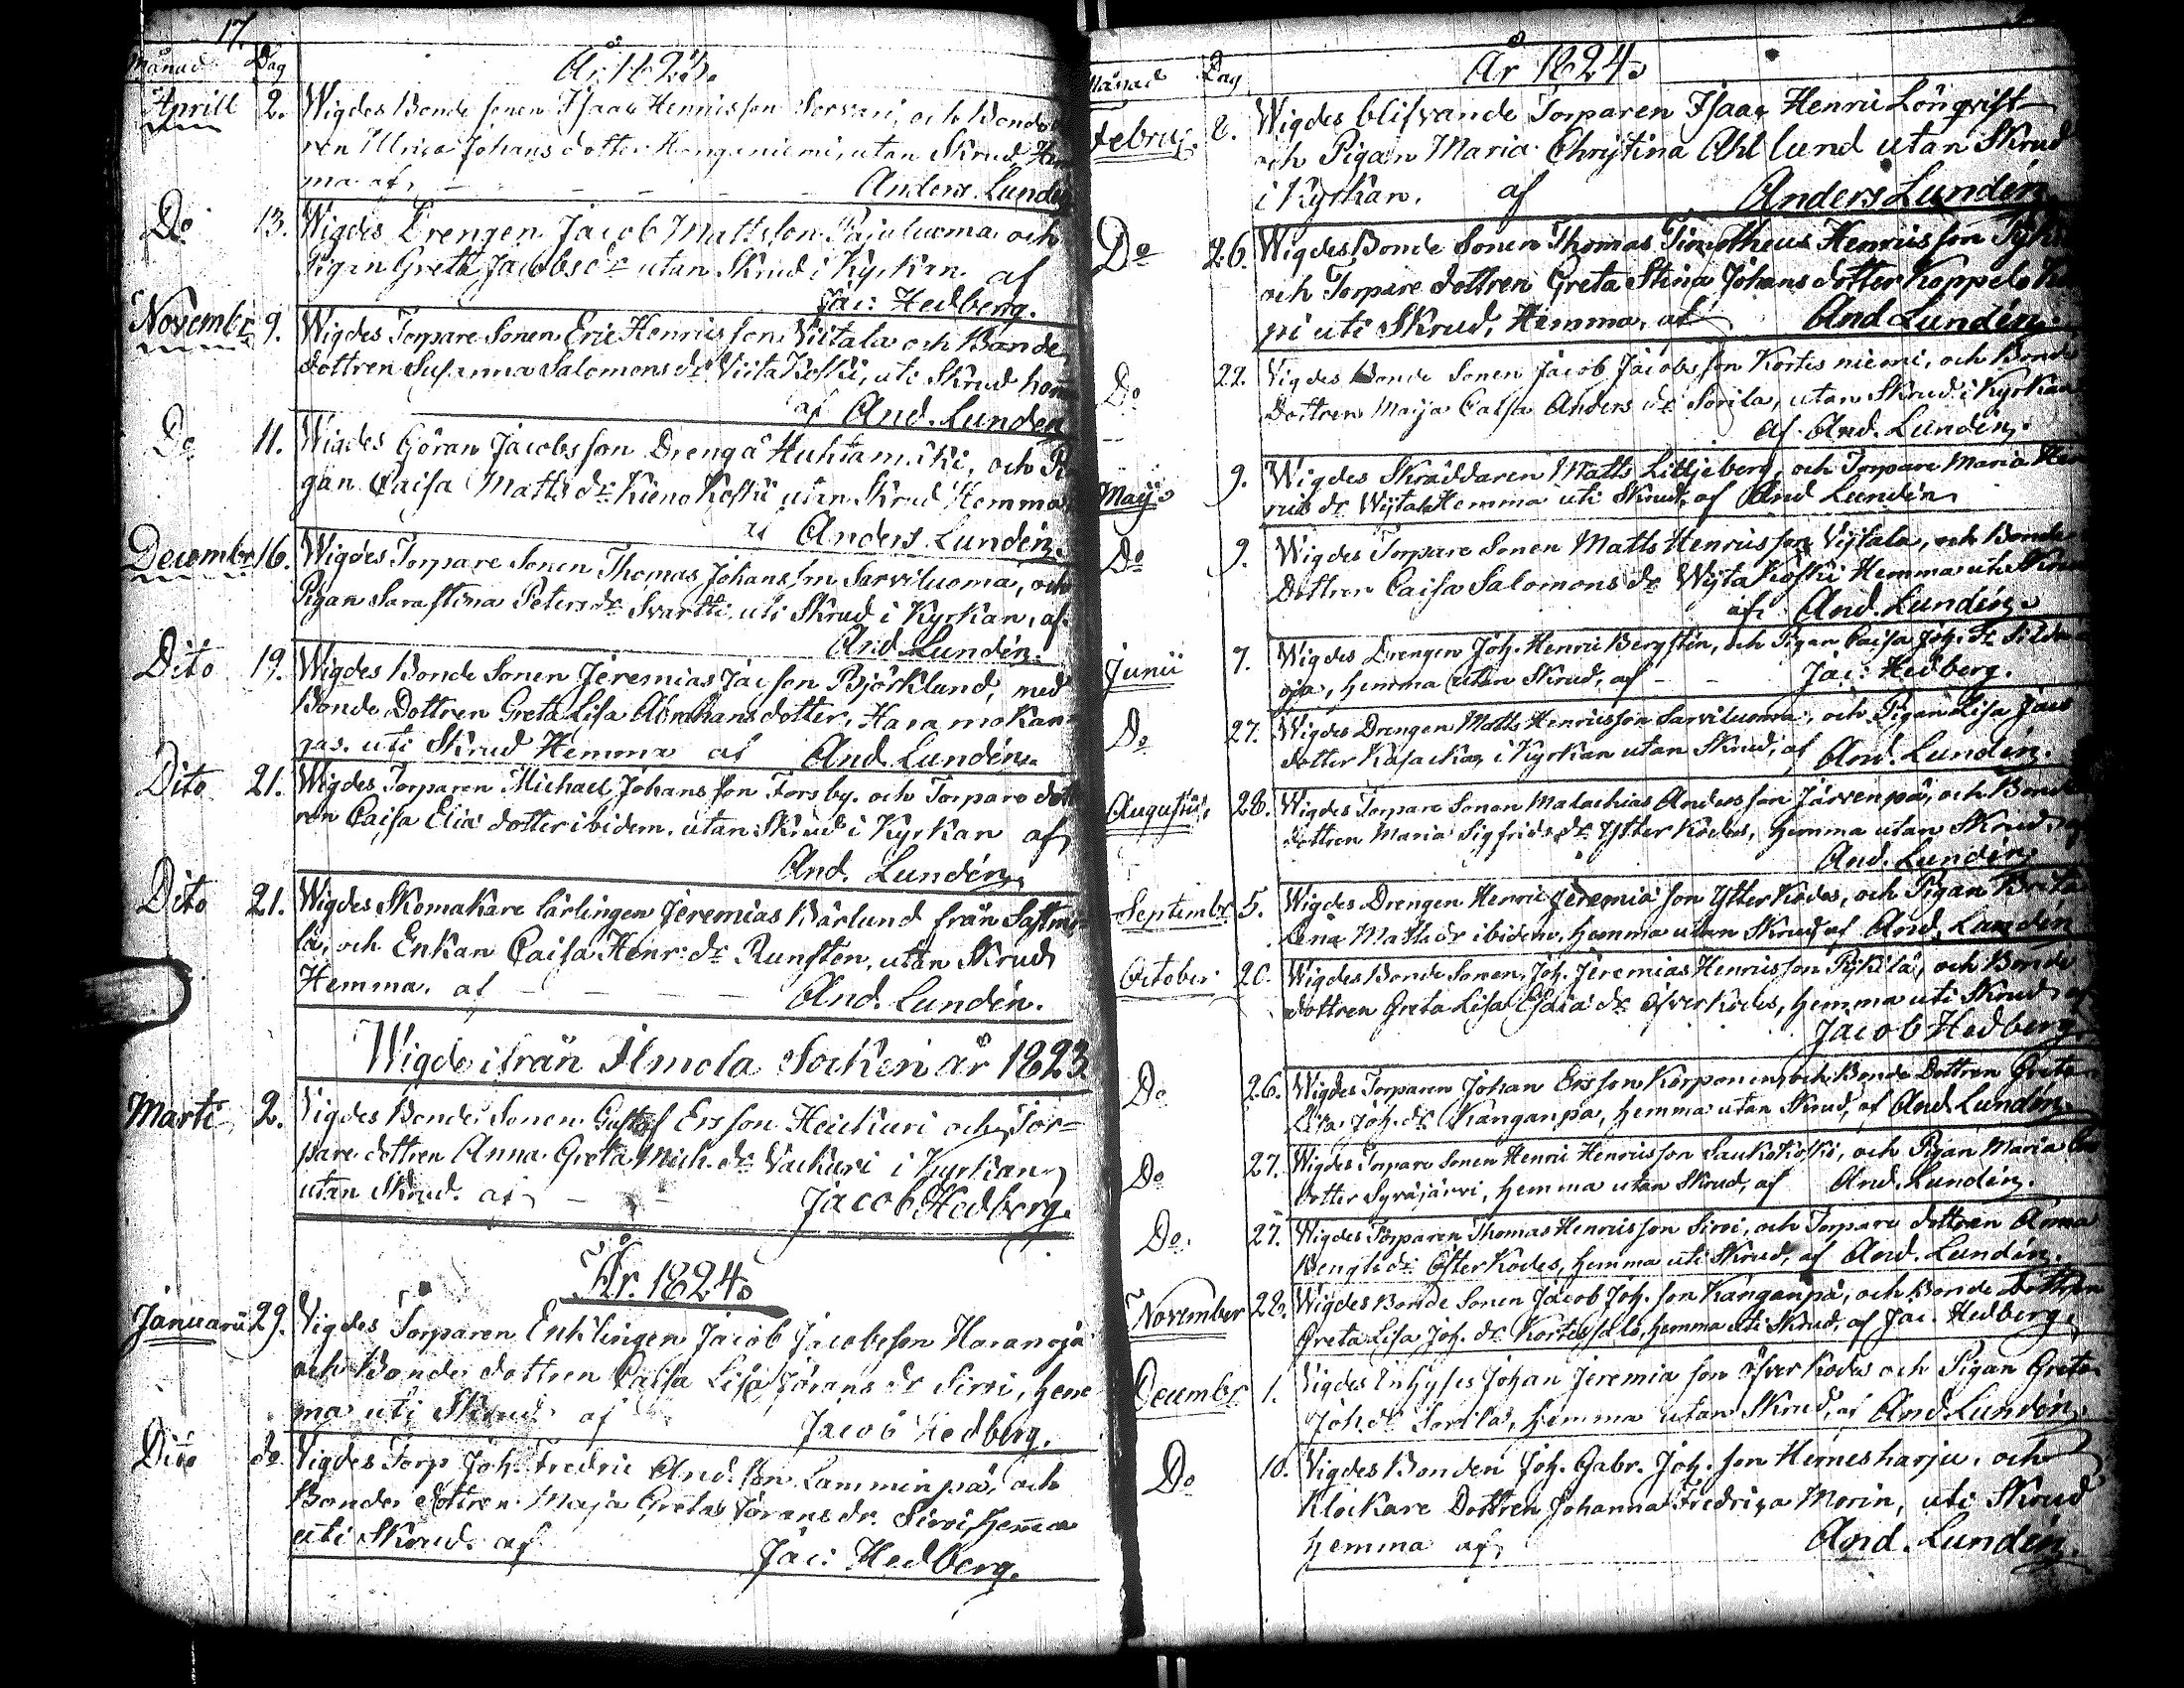 17.
Månad Dag År 1823.
Aprill 2. Wigdes Bonde sonen Isaac Henricsson Sorvari, och Bonde
ren Ulrica Johans dotter Kangasniemi, utan Skrud, Hem
ma af Anders Lundén
Do 13. Wigdes Drengen Jacob Mattsson Pajuluoma och
Pigan Greta Jacobs dr utan Skrud i Kyrkan af
Jac: Hedberg.
Novembr 9. Wigdes Torpare Sonen Eric Henricsson Viitala och Bonde
dottren Susanna Salomons dr Viita Koski, uti Skrud hem
af And. Lundén
Do 11. Wigdes Göran Jacobsson Dreng å Huhtamäki, och Pi
gan Caisa Matts dr Kieno Koski utan Skrud Hemma
af Anders Lundén.
Decembr 16. Wigdes Torpare Sonen Thomas Johansson Sarviluoma, och
Pigan Sara Stina Peters dr Svartti uti Skrud i Kyrkan, af
And Lundén.
Dito 19. Wigdes Bonde Sonen Jeremias Jacsson Björklund, med
Bonde Dottren Greta Lisa Abrahans dotter, Haramokan
gas. uti Skrud Hemma af And. Lundén.
Dito 21. Wigdes Torparen Michael Johansson Forsby. och Torpare dott
ren Caisa Eliæ dotter ibidem. utan Skrud i Kyrkan af
And. Lundén.
Dito 21. Wigdes Skomakare lärlingen Jeremias Bärlund från Sastmo
la, och Enkan Caisa Henr: dr Runsten, utan Skrud
Hemma. af And. Lundén.
Wigde ifrån Ilmola Socken år 1823
Marti 2. Vigdes Bonde Sonen Gustaf Ersson Heickuri och Tor=
pare dottren Anna Greta Mich. dr Vackuri i Kyrkan
utan Skrud. af Jacob Hedberg.
År. 1824.
Januarii 29. Vigdes Torparen Enklingen Jacob Jacobsson Haranoja
och Bonde dottren Caisa Lisa Jörans dr Sirvi, hem
ma uti Skrud af Jacob Hedberg.
Dito do. Vigdes Torp Joh. Fredric And. son Lamminpä, och
Bonde dottren Maja Greta Jörans dr. Sirvi, hema
uti Skrud. af Jac: Hedberg.
Månad Dag År 1824.
Februi: 8. Wigdes blifvande Torparen Isaac Henric Lönqvist
och Pigan Maria Christina Ahllund utan Skrud
i Kyrkan. af Anders Lundén
Do 26. Wigdes Bonde Sonen Thomas Timotheus Henricsson
och Torpare dottren Greta Stina Johans dotter Koppelo
pi uti Skrud, Hemma, af And Lundén.
Do 22. Vigdes Bonde Sonen Jacob Jacobsson Kortes niemi, och Bonde
Dottren Maija Caisa Anders dr Sorila, utan Skrud i Kyrkan
af. And. Lundén.
Maij 9. Wigdes Skräddaren Matts Liljeberg, och Torpare Maria Hen
rics dr Wijtala Hemma uti Skrud, af And Lundén
Do 9. Wigdes Torpare Sonen Matts Henricsson Vijtala, och Bonde
Dottren Caisa Salomons dr Wijta Koski Hemma uti Skrud
af. And. Lundén.
Junii 7. Wigdes Drengen Joh. Henric Bergstén, och Pigan Caisa Joh. dr
oja, hemma utan Skrud, af Jac: Hedberg.
Do 27. Wigdes Drengen Matts Henricsson Sarviluoma, och Pigan Lisa Jacs
dotter Kasackas i Kyrkan utan Skrud, af And. Lundén.
Augusti, 28. Wigdes Torpare Sonen Malachias Andersson Järvenpä, och Bonde
dottren Maria Sigfrids dr Ytter Kodes, hemma utan Skrud af
And. Lundén.
Septembr 5. Wigdes Drengen Henric Jeremiæ son Ytter Kodes, och Pigan Brita
Lena Matts dr ibidem, hemma utan Skrud af And. Lundén
October 20. Wigdes Bonde Sonen, Joh. Jeremias Henricsson Pijkilä, och Bonde
dottren Greta Lisa Esaiæ dr Öfver Kodes, hemma uti Skrud af
Jacob Hedberg
Do 26. Wigdes Torparen Johan Ersson Korponen, och Bonde Dottren Greta
Lisa Joh. dr Kanganpä, hemma utan Skrud, af And. Lundén
Do 27. Wigdes Torpare Sonen Henric Henricsson Laukokoski, och Pigan Maria
dotter Syväjärvi, hemma utan Skrud, af And. Lundén.
Do. 27. Wigdes Torparen Thomas Henricsson Sirvi, och Torpare dottren Anna
Bengts dr Öfter Kodes, hemma uti Skrud, af And. Lundén.
November 28. Wigdes Bonde Sonen Jacob Joh. son Kanganpä, och Bonde Dottren
Greta Lisa Joh. dr Kortessalo, hemma uti Skrud, af Jac. Hedberg.
Decembr 1. Vigdes Inhyses Johan Jeremiæ son Öfver Kodes och Pigan Greta
Joh. dr Sorila, hemma utan Skrud, af And. Lundén.
Do 10. Vigdes Bonden Joh. Gabr. Joh. son Hernesharju, och
Klockare Dottren Johanna Fredrica Morin, uti Skrud
hemma af, And. Lundén.